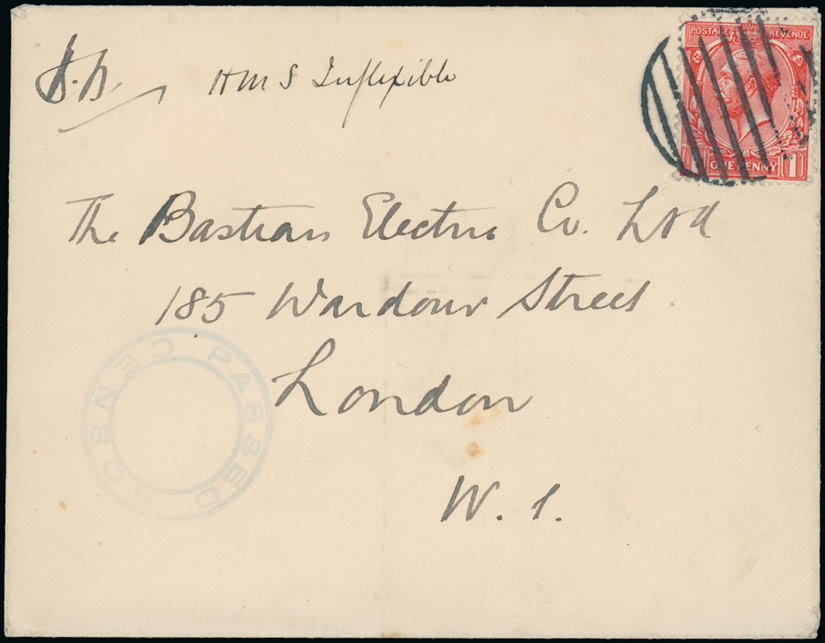 HMS Inflexible
POSTAGE REVENUE
ONE PENNY
1
The Bastian Electric Co. Ltd
185 Wardour Street
London
W. 1.
PASSED CENSOR